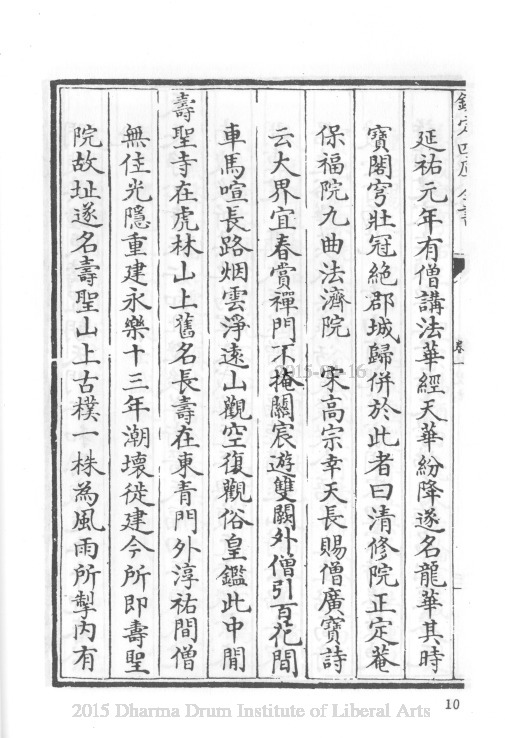 欽定四庫全書
卷一
延祐元年有僧講法華經天華紛降遂名龍華其時
寶閣穹壯冠絶郡城歸併於此者曰清修院正定菴
保福院九曲法濟院 宋高宗幸天長賜僧廣寶詩
云大界宜春賞禪門不掩關宸遊雙闕外僧引百花間
車馬喧長路烟雲淨遠山觀空復觀俗皇鑑此中閒
壽聖寺在虎林山上舊名長壽在東青門外淳祐間僧
無住光隱重建永樂十三年潮壞徙建今所即壽聖
院故址遂名壽聖山上古樸一株為風雨所掣內有
10
2015 Dharma Drum Institute of Liberal Arts